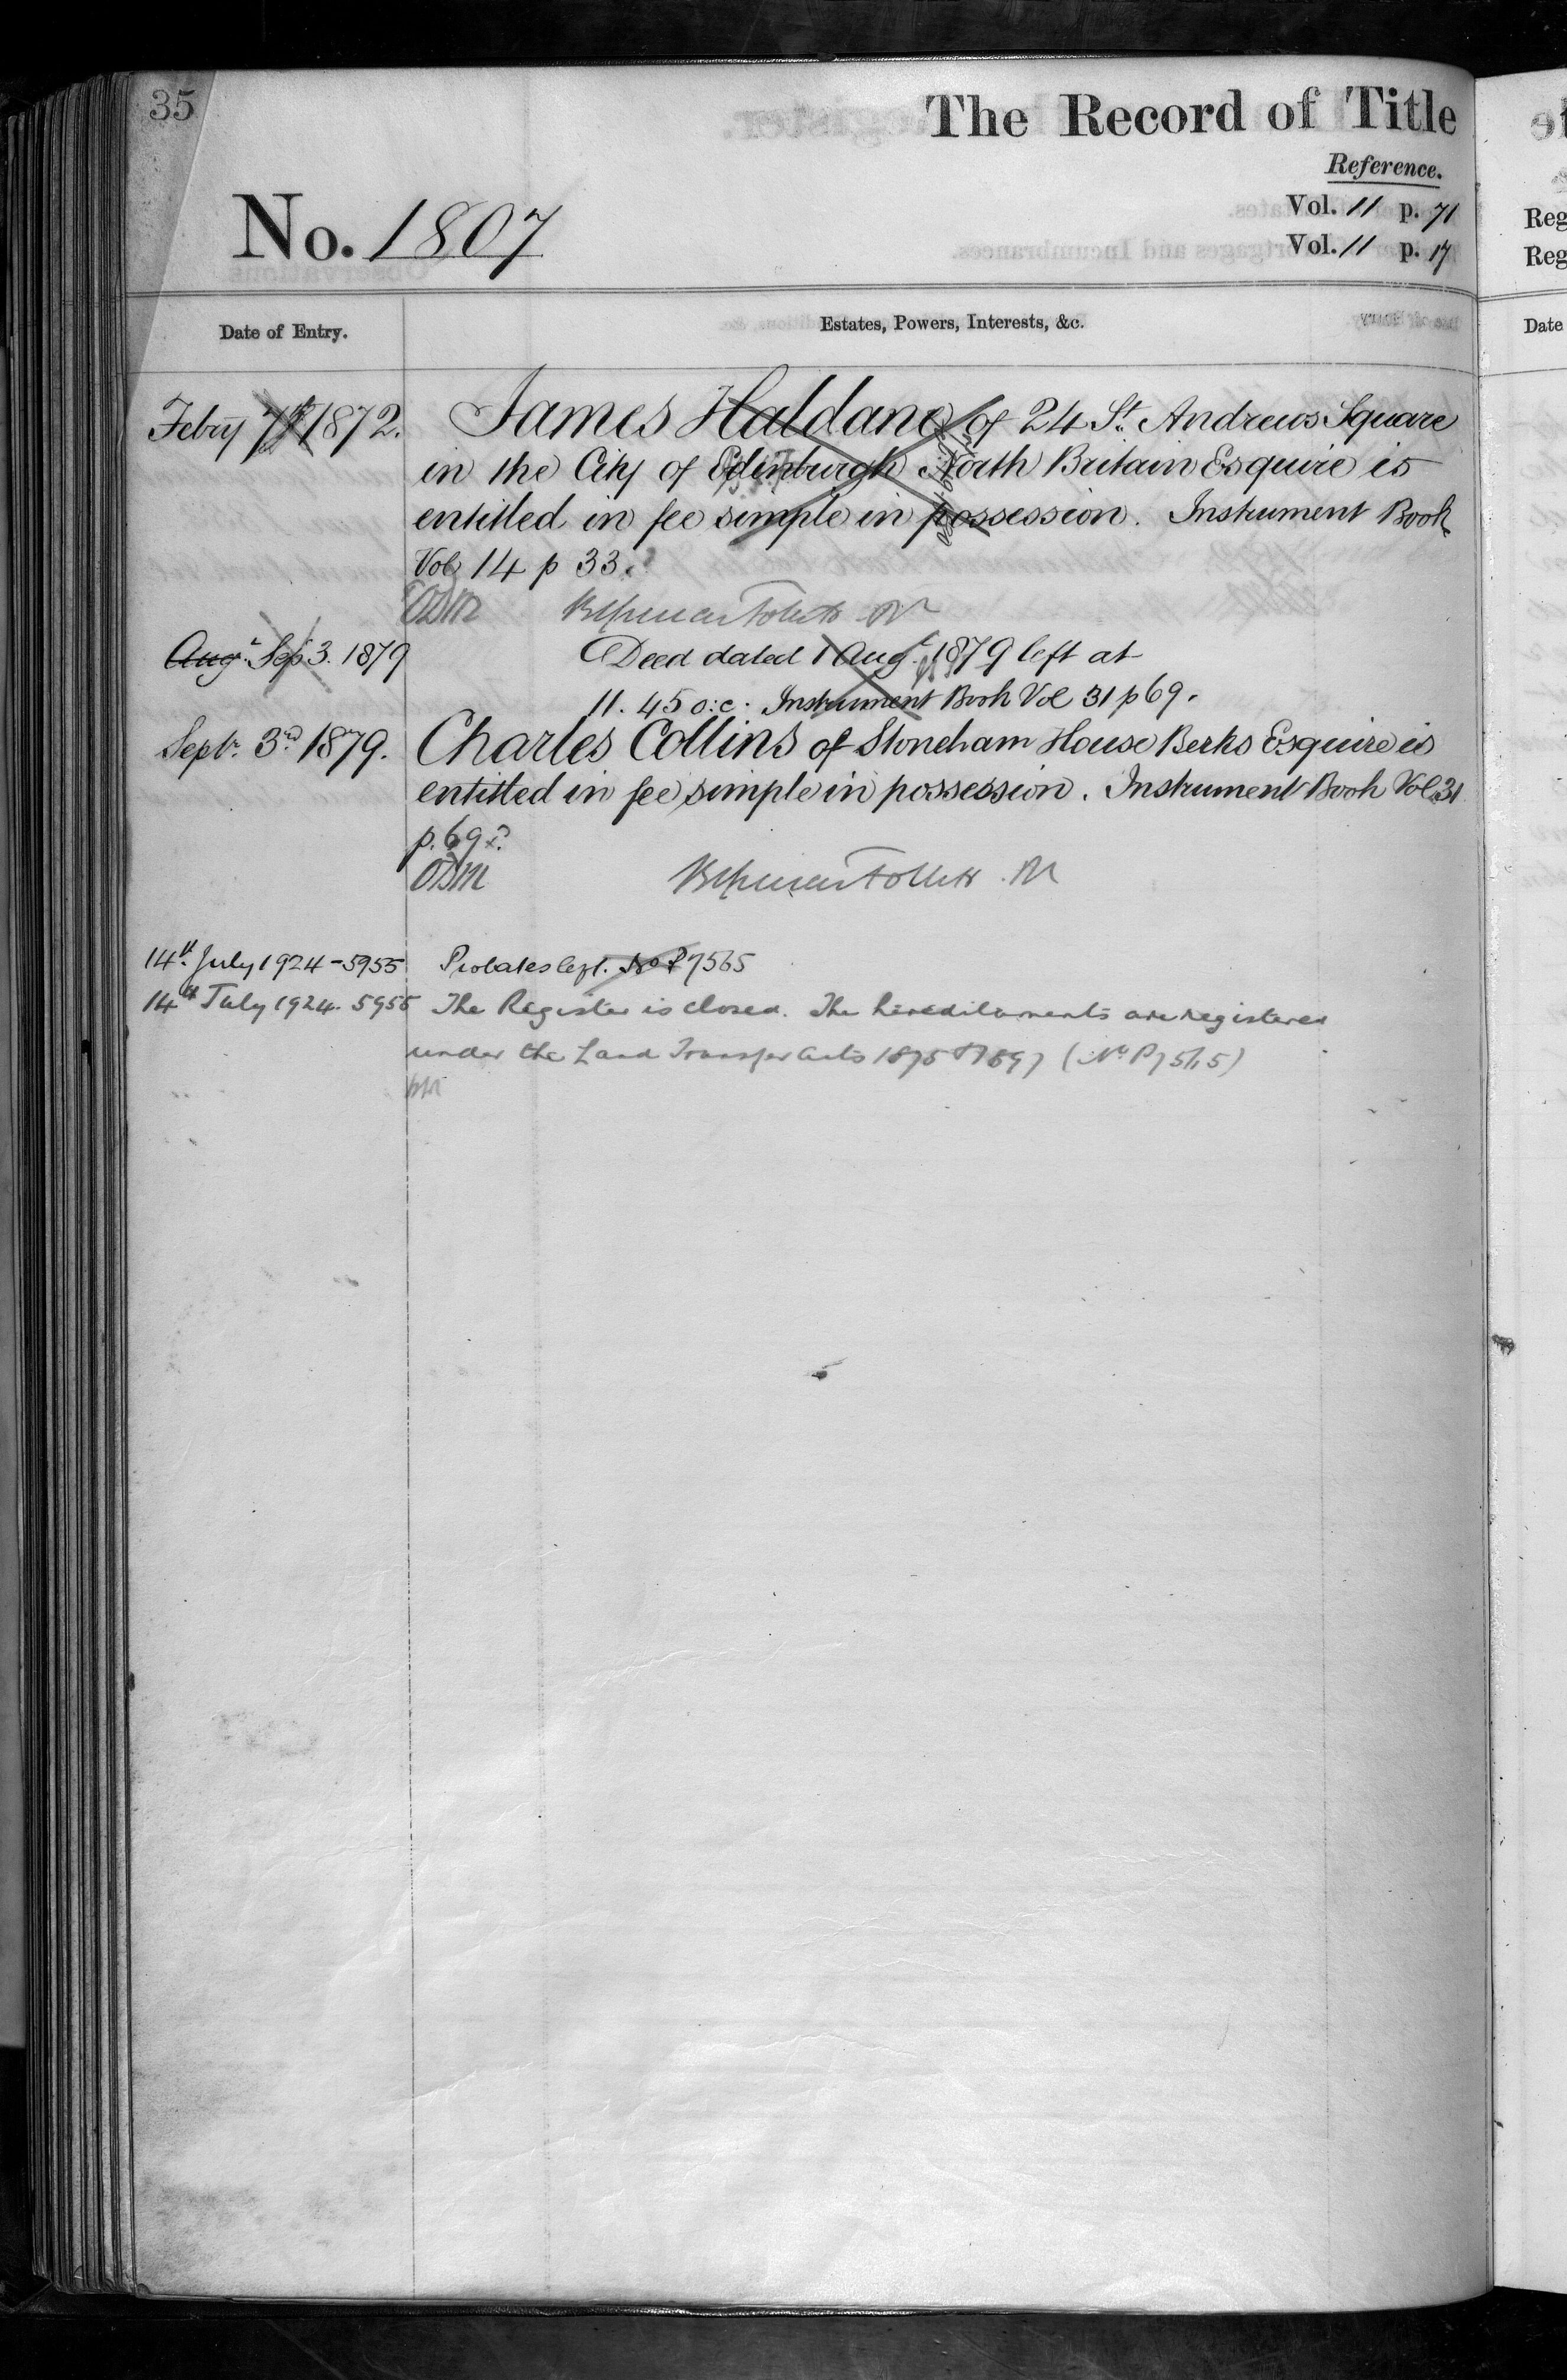 35
The Record of Title
Reference.
No. 1807
Vol. 11 p. 71
Vol. 11 p. 17
Date of Entry.
Estates, Powers, Interests, &c.
Febry 7th 1872.
James Haldane of 24 St. Andrews Square
in the City of Edinburgh North Britain Esquire is
entitled in fee simple in possession. Instrument Book
Vol 14 p 33.
ODM
Aug. Sep 3. 1879
Deed dated 1 Aug. 1879 left at
11.45 o:c. Instrument Book Vol 31 p 69.
Septr. 3rd 1879.
Charles Collins of Stoneham House Berks Esquire is
entitled in fee simple in possession. Instrument Book Vol 31
p. 69.
ODM
14th July 1924 - 5955
Probates left. No P7565
14th July 1924. 5955
The Register is closed. The hereditaments are registered
under the Land Transfer Acts 1875 & 1897 (No P7565)
Reg
Reg
Date